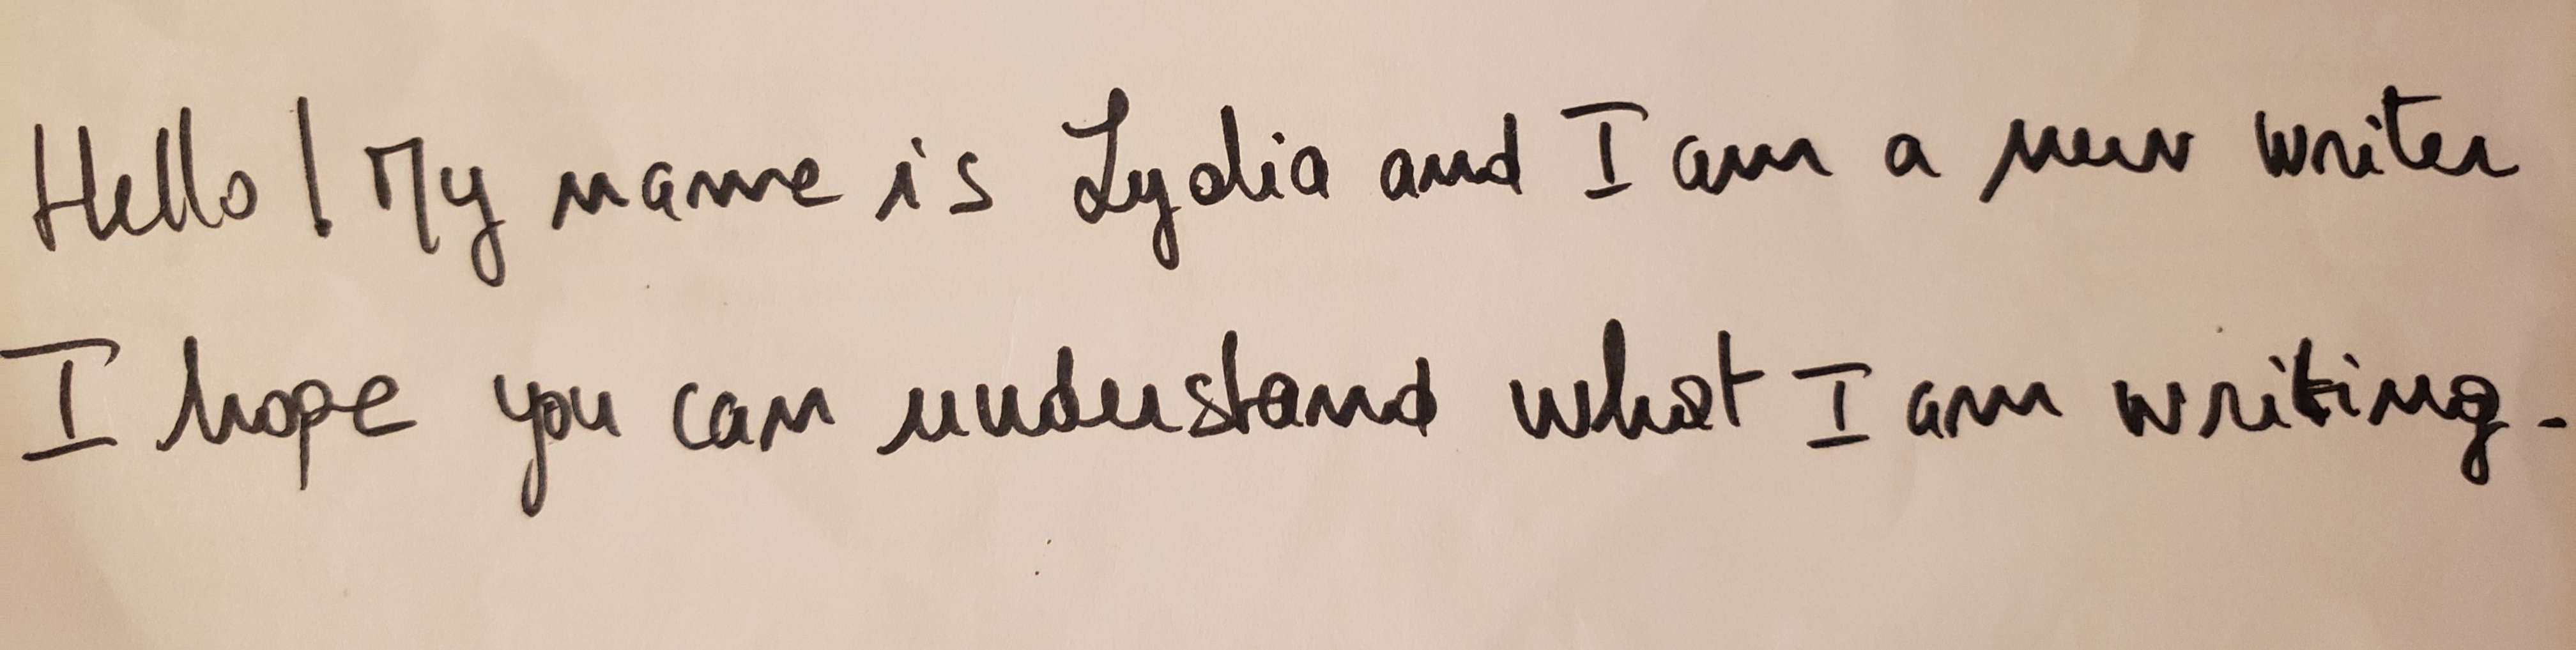 Hello! My name is Lydia and I am a new writer
I hope you can understand what I am writing.